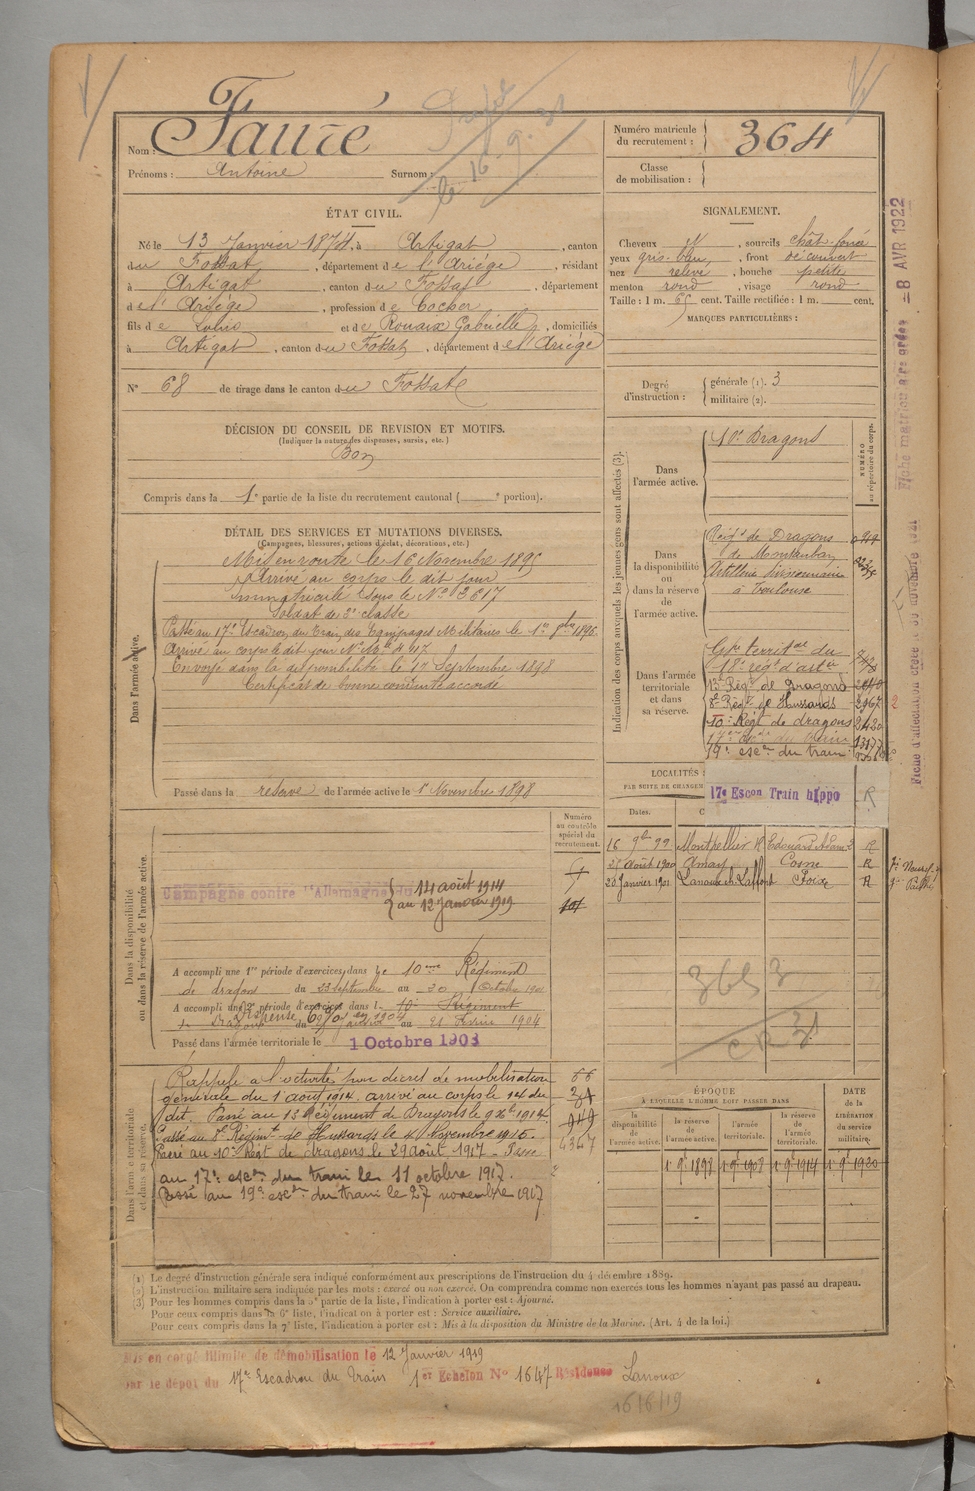 Nom : Fauré
Prénoms : Antoine Surnom :
le 16. 9.
Numéro matricule du recrutement : 364
Classe de mobilisation :
ÉTAT CIVIL.
Né le 13 Janvier 1874, à Artigat, canton
du Fossat, département de l'Ariège, résidant
à Artigat, canton du Fossat, département
de l'Ariège, profession de Cocher
fils de Louis et de Rouaix Gabrielle, domiciliés
à Artigat, canton du Fossat, département de l'Ariège
N° 68 de tirage dans le canton du Fossat
DÉCISION DU CONSEIL DE REVISION ET MOTIFS.
(Indiquer la nature des dispenses, sursis, etc.)
Bon
Compris dans la 1e partie de la liste du recrutement cantonal ( e portion).
SIGNALEMENT.
Cheveux , sourcils chât. foncé
yeux gris-bleu, front découvert
nez relevé, bouche petite
menton rond, visage rond
Taille : 1 m. 65 cent. Taille rectifiée : 1 m. cent.
MARQUES PARTICULIÈRES :
Degré d'instruction : générale (1). 3
militaire (2).
DÉTAIL DES SERVICES ET MUTATIONS DIVERSES.
(Campagnes, blessures, actions d'éclat, décorations, etc.)
Dans l'armée active.
Mis en route le 16 Novembre 1895
Arrivé au corps le dit jour
immatriculé sous le N° 3617
Soldat de 2e classe
Passé au 17e Escadron du Train des Equipages Militaires le 1er 9bre 1896.
Arrivé au corps le dit jour
Envoyé dans la disponibilité le 17 Septembre 1898
Certificat de bonne conduite accordé
Passé dans la réserve de l'armée active le 1er Novembre 1898
Indication des corps auxquels les jeunes gens sont affectés (3).
NUMÉRO au répertoire du corps.
Dans l'armée active.
10e Dragons
Dans la disponibilité ou dans la réserve de l'armée active.
Régt de Dragons
de Montauban
Artillerie divisionnaire
à Toulouse
Dans l'armée territoriale et dans sa réserve.
Gpe territal du
18e régt d'artie
13e Régt de Dragons
8e Régt de Hussards 2967
10e Régt de dragons 2420
19e escon du train
LOCALITÉS
PAR SUITE DE CHANGEM
17e Escon Train hippo R
Dates.
16 9bre 99 Montpellier R Edouard Adam R
25 août 1900 Cosne R
20 Janvier 1901 Lanoux Foix R
Dans la disponibilité ou dans la réserve de l'armée active.
Numéro au contrôle spécial du recrutement.
Campagne contre l'Allemagne du 14 août 1914
au 12 Janvier 1919
A accompli une 1re période d'exercices dans le 10me Régiment
de dragons du 23 septembre au 20 Octobre 190
A accompli une 2e période d'exercices dans l 10e Régiment
au 21 Février 1904
Passé dans l'armée territoriale le 1 Octobre 1908
Dans l'armée territoriale et dans sa réserve.
Rappelé à l'activité par décret de mobilisation
générale du 1 août 1914. arrivé au corps le 14 du
dit. Passé au 13e Régiment de Dragons le 9 Xbre 1914.
Passé au 8e Régimt de Hussards le 4 Novembre 1915.
Passé au 10e Régt de dragons le 29 août 1917 - Passé
au 17e escon du train le 11 octobre 1917.
Passé au 19e escon du train le 27 novembre 1917
66
949
4367
ÉPOQUE
A LAQUELLE L'HOMME DOIT PASSER DANS
la disponibilité de l'armée active.
la réserve de l'armée active.
l'armée territoriale.
la réserve de l'armée territoriale.
DATE de la LIBÉRATION du service militaire.
1er 9e 1898 1er 9e 1908 1er 9e 1914 1er 9e 1920
(1) Le degré d'instruction générale sera indiqué conformément aux prescriptions de l'instruction du 4 décembre 1889.
(2) L'instruction militaire sera indiquée par les mots : exercé ou non exercé. On comprendra comme non exercés tous les hommes n'ayant pas passé au drapeau.
(3) Pour les hommes compris dans la 5e partie de la liste, l'indication à porter est : Ajourné.
Pour ceux compris dans la 6e liste, l'indication à porter est : Service auxiliaire.
Pour ceux compris dans la 7e liste, l'indication à porter est : Mis à la disposition du Ministre de la Marine. (Art. 4 de la loi.)
Mis en congé illimité de démobilisation le 12 Janvier 1919
par le dépôt du 17e Escadron du Train 1er Echelon N° 1647 Résidence Lanoux
16/6/19
Fiche matriculaire créée 8 AVR 1922
Fiche d'affectation créée le novembre